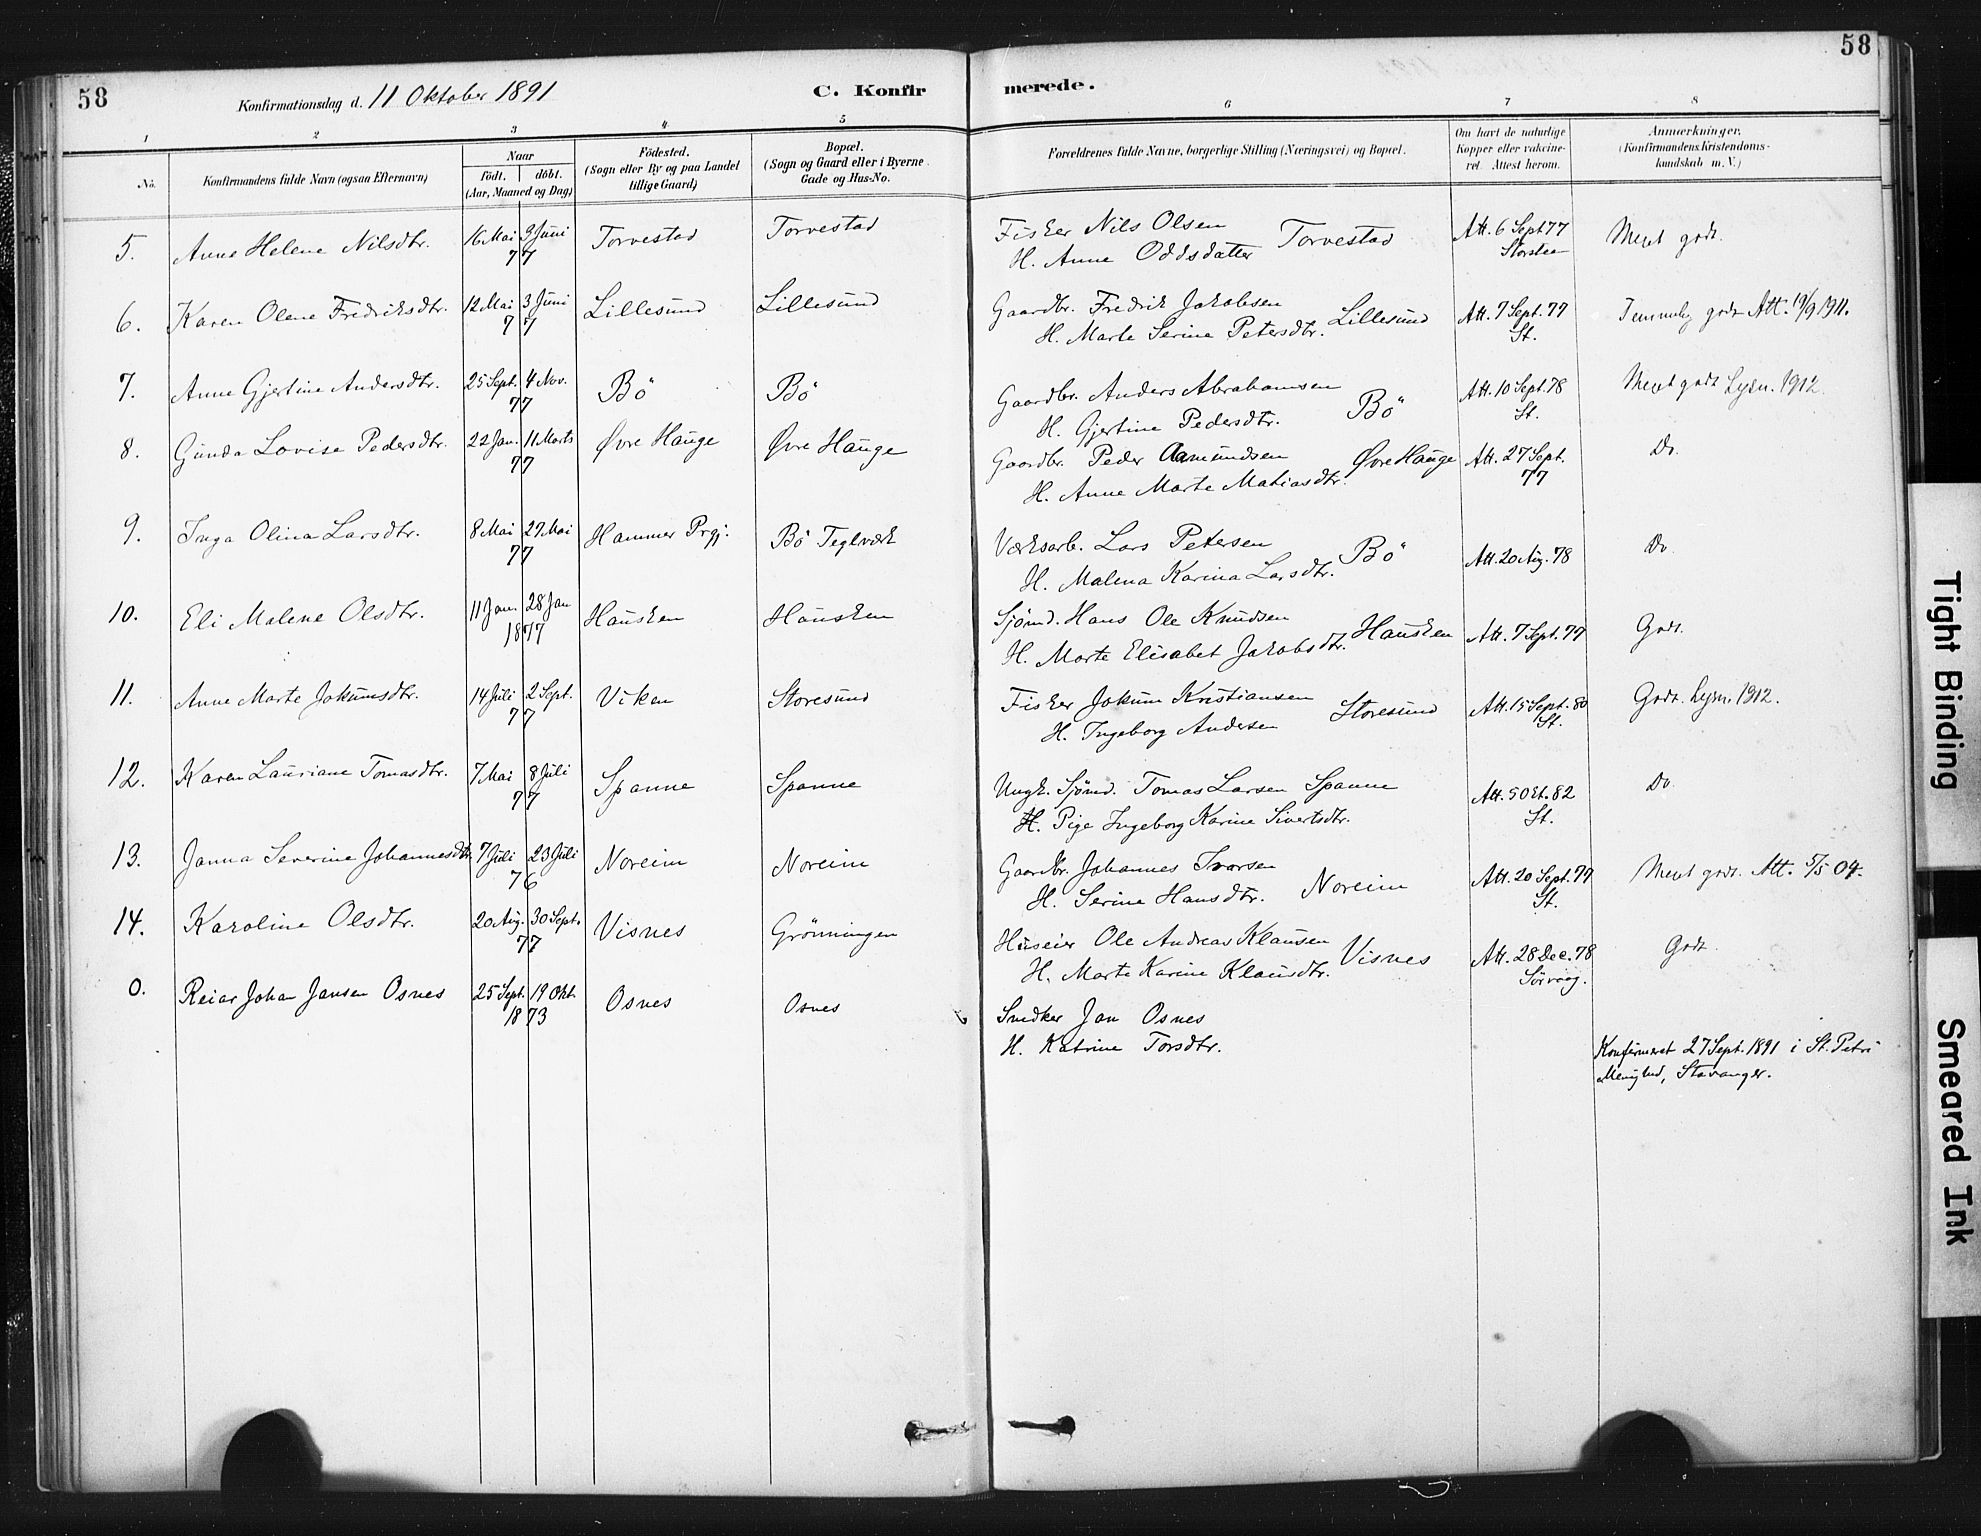 58
Konfirmationsdag d. 11 Oktober 1891
C. Konfir
merede.
58
1 2 3 4 5 6 7 8
No.
Konfirmandens fulde Navn (ogsaa Efternavn)
Naar
födt. döbt.
(Aar, Maaned og Dag)
Födested.
(Sogn eller By og paa Landet
tillige Gaard)
Bopæl.
(Sogn og Gaard eller i Byerne
Gade og Hus-No.
Forældrenes fulde Navne, borgerlige Stilling (Næringsvei) og Bopæl.
Om havt de naturlige
Kopper eller vakcine-
ret. Attest herom.
Anmærkninger,
(Konfirmandens Kristendoms-
kundskab m. V.)
5. Anne Helene Nilsdtr. 16 Mai 9 Juni 77 Torvestad Torvestad
Fisker Nils Olsen Torvestad Att. 6 Sept 77 Meget godt.
H. Anne Oddsdatter Storsten
6. Karen Olene Fredriksdtr. 12 Mai 3 Juni 77 Lillesund Lillesund
Gaardbr. Fredrik Jakobsen Lillesund Att. 7 Sept. 77 Temmelig godt Att. 19/9 1911.
H. Marte Serine Petersdtr. St.
7. Anne Gjertine Andersdtr. 25 Sept. 4 Nov. 77 Bö Bö
Gaardbr. Anders Abrahamsen Bö Att. 10 Sept 78 Meget godt Lysn. 1912
H. Gjertine Pedersdtr. St.
8. Gunda Lovise Pedersdtr. 22 Jan. 11 Marts 77 Øvre Hauge Øvre Hauge
Gaardbr. Peder Aamundsen Øvre Hauge Att. 27 Sept. 77 Do.
H. Anne Marte Matiasdtr.
9. Inga Olina Larsdtr. 8 Mai 27 Mai 77 Hammer Prgj. Bö Teglværk
Værksarb. Lars Petersen Bö Att. 20 Aug. 78 Do
H. Malena Karina Larsdtr.
10. Eli Malene Olsdtr. 11 Jan. 28 Jan 1877 Hausken Hausken
Sjömd. Hans Ole Knudsen Hausken Att. 7 Sept. 77 Godt.
H. Marte Elisabet Jakobsdtr.
11. Anne Marte Jokumsdtr. 14 Juli 2 Sept. 77 Viken Storesund
Fisker Jokum Kristiansen Storesund Att. 15 Sept. 80 Godt. Lysn. 1912.
H. Ingeborg Andersen St.
12. Karen Lauriane Tomasdtr. 7 Mai 8 Juli 77 Spanne Spanne
Ungk. Sjömd. Tomas Larsen Spanne Att. 5 Okt. 82 Do
H. Pige Ingeborg Karine Sivertsdtr. St.
13. Janna Severine Johannesdtr. 7 Juli 23 Juli 76 Noreim Noreim
Gaardbr. Johannes Ivarsen Noreim Att. 20 Sept. 77 Meget godt. Att. 5/5 04.
H. Serine Hansdtr. St.
14. Karoline Olsdtr. 20 Aug. 30 Sept. 77 Visnes Grönningen
Huseier Ole Andreas Klausen Visnes Att. 28 Dec. 78 Godt
H. Marte Karine Klausdtr. Sörvaag.
0. Reiar Johan Jansen Osnes 25 Sept. 19 Okt. 1873 Osnes Osnes
Snedker Jan Osnes
H. Katrine Torsdtr.
Konfirmeret 27 Sept. 1891 i St. Petri
Menighed, Stavanger.
Tight Binding
Smeared Ink